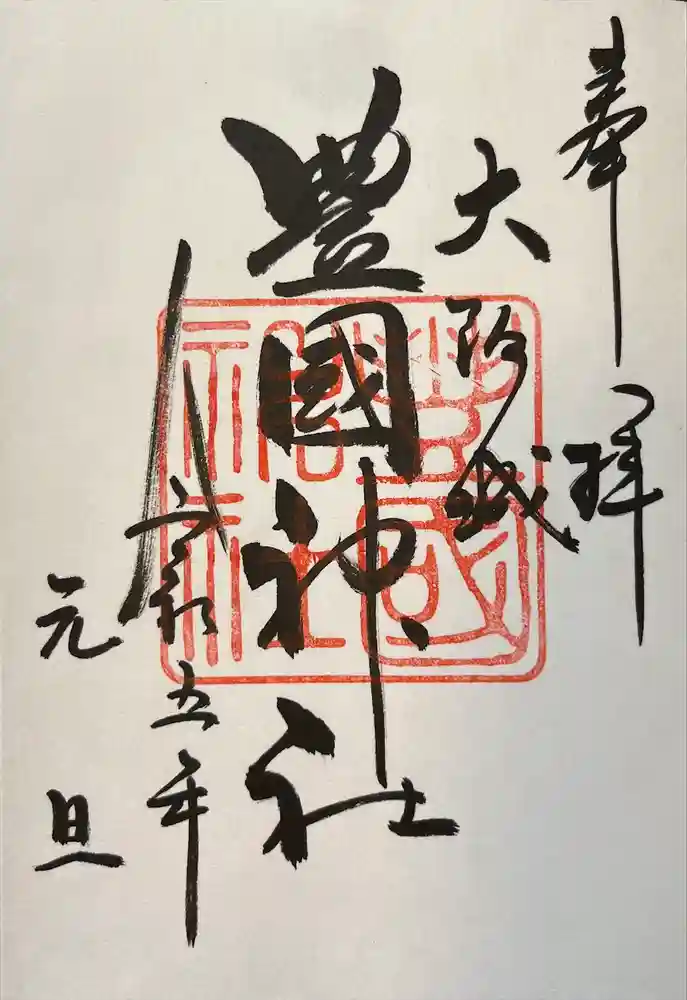 奉拝
大阪城
豊國神社
令和五年
元旦
豐國神社